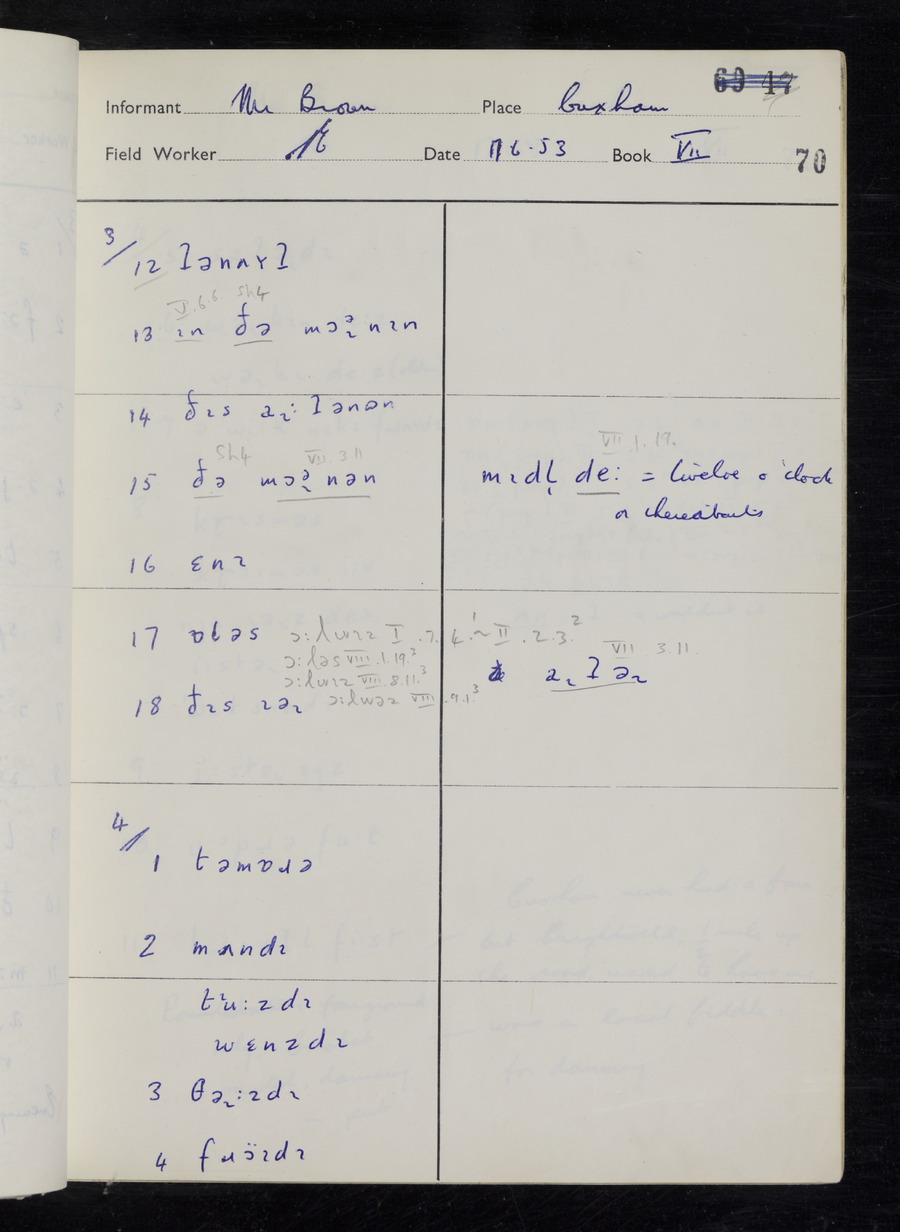 69 47
Informant Mr Brown Place Cuxham
Field Worker Date 17.6.53 Book VII 70
3/
12 ʔənʌɤʔ
V.6.6 Sh4
13 ɪn ðə mɔə̯ɹnɪn
14 ðɪs
Sh4 VII.3.11 VII.1.19.
15 ðə mɔɹnən mɪdl̩ deː = twelve o'clock
or thereabouts
16 ɛnɪ
17 ɒləs ɔːlwɪz I.7.4.¹ ~ II.2.3.²
ɔːləs VIII.1.19.³ VII 3.11.
ɔːlwɪz VIII.8.11.³
18 ðɪs ɔːlwəz VIII.9.1³
4/
1 təmɒɹə
2 mʌndɪ
tʲuːzdɪ
wɛnzdɪ
3 θəɹːzdɪ
4